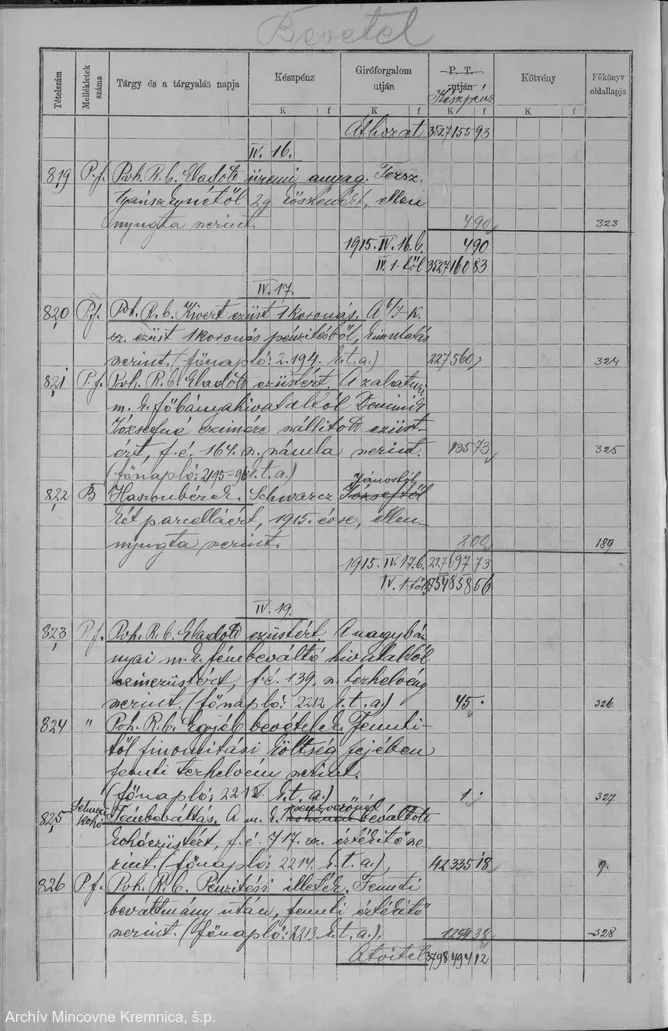 Bevétel
Tételszám
Mellékletek száma
Tárgy és a tárgyalás napja
Készpénz
Giróforgalom útján
P. T. útján
Készpénz
Kötvény
Főkönyv oldallapja
K f K f K f K f
Áthozat 3527155 93
IV. 16.
819 P.f. Poh. R. b. Eladott üzemi anyag.
2 q kőszénért, ellen
nyugta szerint. 490 323
1915. IV. 16. b. 490
IV. 1-től 3527160 83
IV. 17.
820 P.f. Poh. R. b. Kivert ezüst 1 koronás. A
sz. ezüst 1 koronás pénzitésből, kimutatás
szerint. (főnapló: 2194. k. t. a.) 227560 324
821 P.f. Poh. R. b. Eladott ezüstért. A
m. k. főbányahivataltól Dominik
Józsefné számára szállított ezüst-
ért, f. é. 164. sz. számla szerint. 135 73 325
(főnapló: 2195-96 k. t. a.)
822 B Haszonbérek. Schwarcz Jánostól
Józseftől
két parcelláért, 1915. évre, ellen-
nyugta szerint. 2 00 189
1915. IV. 17. b. 227697 73
IV. 1-től 3754858 56
IV. 19.
823 P.f. Poh. R. b. Eladott ezüstért. A nagybá-
nyai m. k. fémbeváltó hivataltól
színezüstért, f. é. 139. sz. terhelvény
szerint. (főnapló: 2212 k. t. a.) 45 326
824 " Poh. R. b. Egyéb bevételek. Fennti-
től finomitási költség fejében
fennti terhelvény szerint.
(főnapló: 2212 k. t. a.) 1 327
825 Selmeci kohó Fémbeváltás. A m. k. pénzverőnél beváltott
kohónál
kohóezüstért, f. é. 717. sz. értékítő sze-
rint. (főnapló: 2214. k. t. a.), 42335 18 9
826 P.f. Poh. R. b. Pénzitési illeték. Fennti
beváltmány után, fennti értékítő
szerint. (főnapló: 2213 k. t. a.) 1254 38 328
Átvitel 3798494 12
Archív Mincovne Kremnica, š.p.